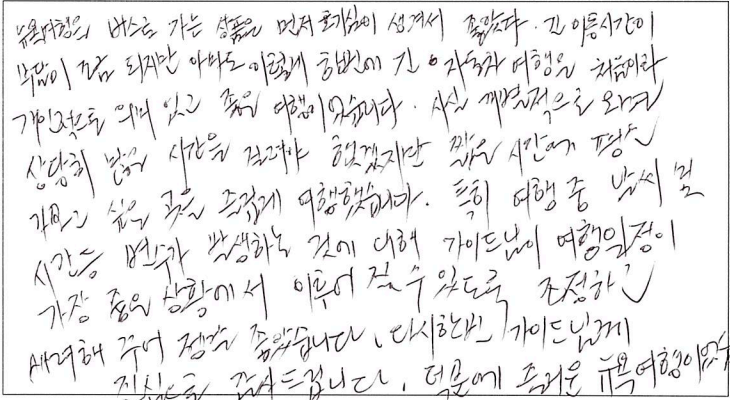 뉴욕여행을 버스로 가는 상품은 먼저 호기심이 생겨서 골랐다. 긴 이동시간이
부담이 조금 되지만 아마도 이렇게 한번에 긴 자동차 여행은 처음이라
개인적으로 의미 있고 좋은 여행이었습니다. 사실 개별적으로 오면
상당히 많은 시간을 걸려야 했겠지만 짧은 시간에 평소
가보고 싶은 곳을 즐겁게 여행했습니다. 특히 여행 중 날씨 및
시간등 변수가 발생하는 것에 대해 가이드님이 여행일정이
가장 좋은 상황에서 이루어 질 수 있도록 조정하고
배려해 주어 정말 좋았습니다. 다시한번 가이드님께
진심으로 감사드립니다. 덕분에 즐거운 뉴욕여행이었습